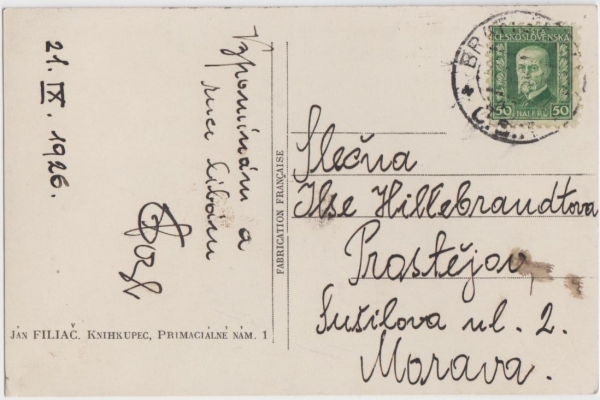 21. IX. 1926.
Vzpomínám a
ruce líbám
JÁN FILIAČ. KNIHKUPEC, PRIMACIÁLNÉ NÁM. 1
FABRICATION FRANÇAISE
ČESKOSLOVENSKÁ
50 HALÉŘŮ 50
Slečna
Ilse Hillebrandtova
Prostějov,
Sušilova ul. 2.
Morava.